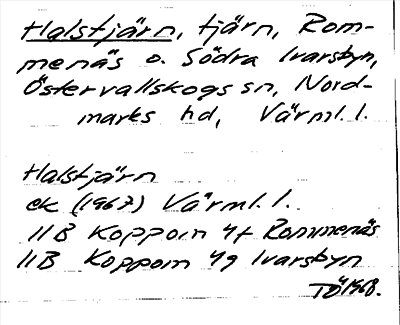 Halstjärn, tjärn, Rom-
menäs o. Södra Ivarsbyn,
Östervallskogs sn, Nord-
marks hd, Värml. l.
Halstjärn
ek (1967) Värml. l.
11B Koppom 4f Rommenäs
11B Koppom 4g Ivarsbyn
TÖ